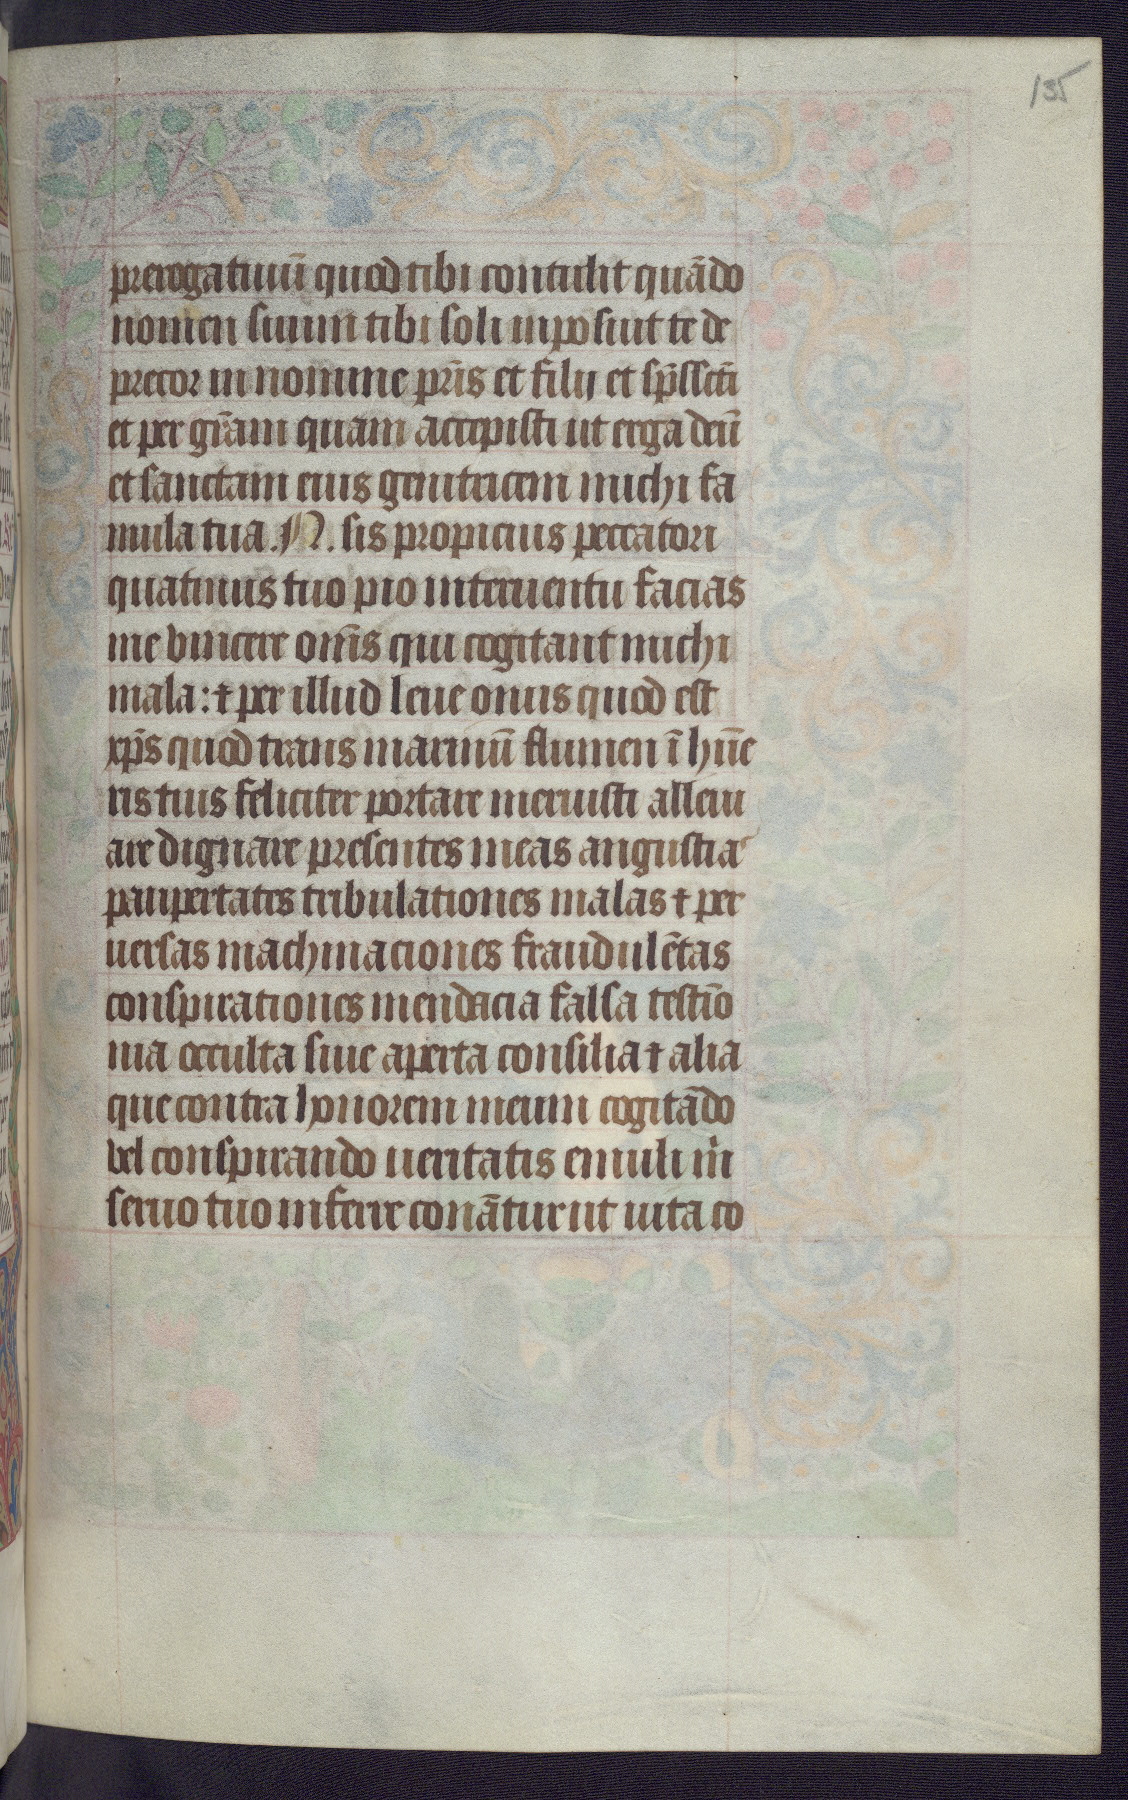 135
prerogatiuū quod tibi contulit quādo
nomen suum tibi soli inposuit te de
precor in nomine pr̄is et filij et sp̄ssc̄ti
et per gr̄am quam accepisti ut erga deū
et sanctam eius genitricem michi fa
mula tua .N. sis propicius peccatori
quatinus tuo pio interuentu facias
me vincere om̄s qui cogitant michi
mala: ⁊ per illud leue onus quod est
xp̄s quod trans marinū flumen ī hūe
ris tuis feliciter portare meruisti alleui
are dignare presentes meas angustias
paupertates tribulationes malas ⁊ per
uersas machinaciones fraudulētas
conspirationes mendacia falsa testīo
nia occulta siue aperta consilia ⁊ alia
que contra honorem meum cogitādo
vel conspirando ueritatis emuli m̄
seruo tuo inferre conātur ut uita co